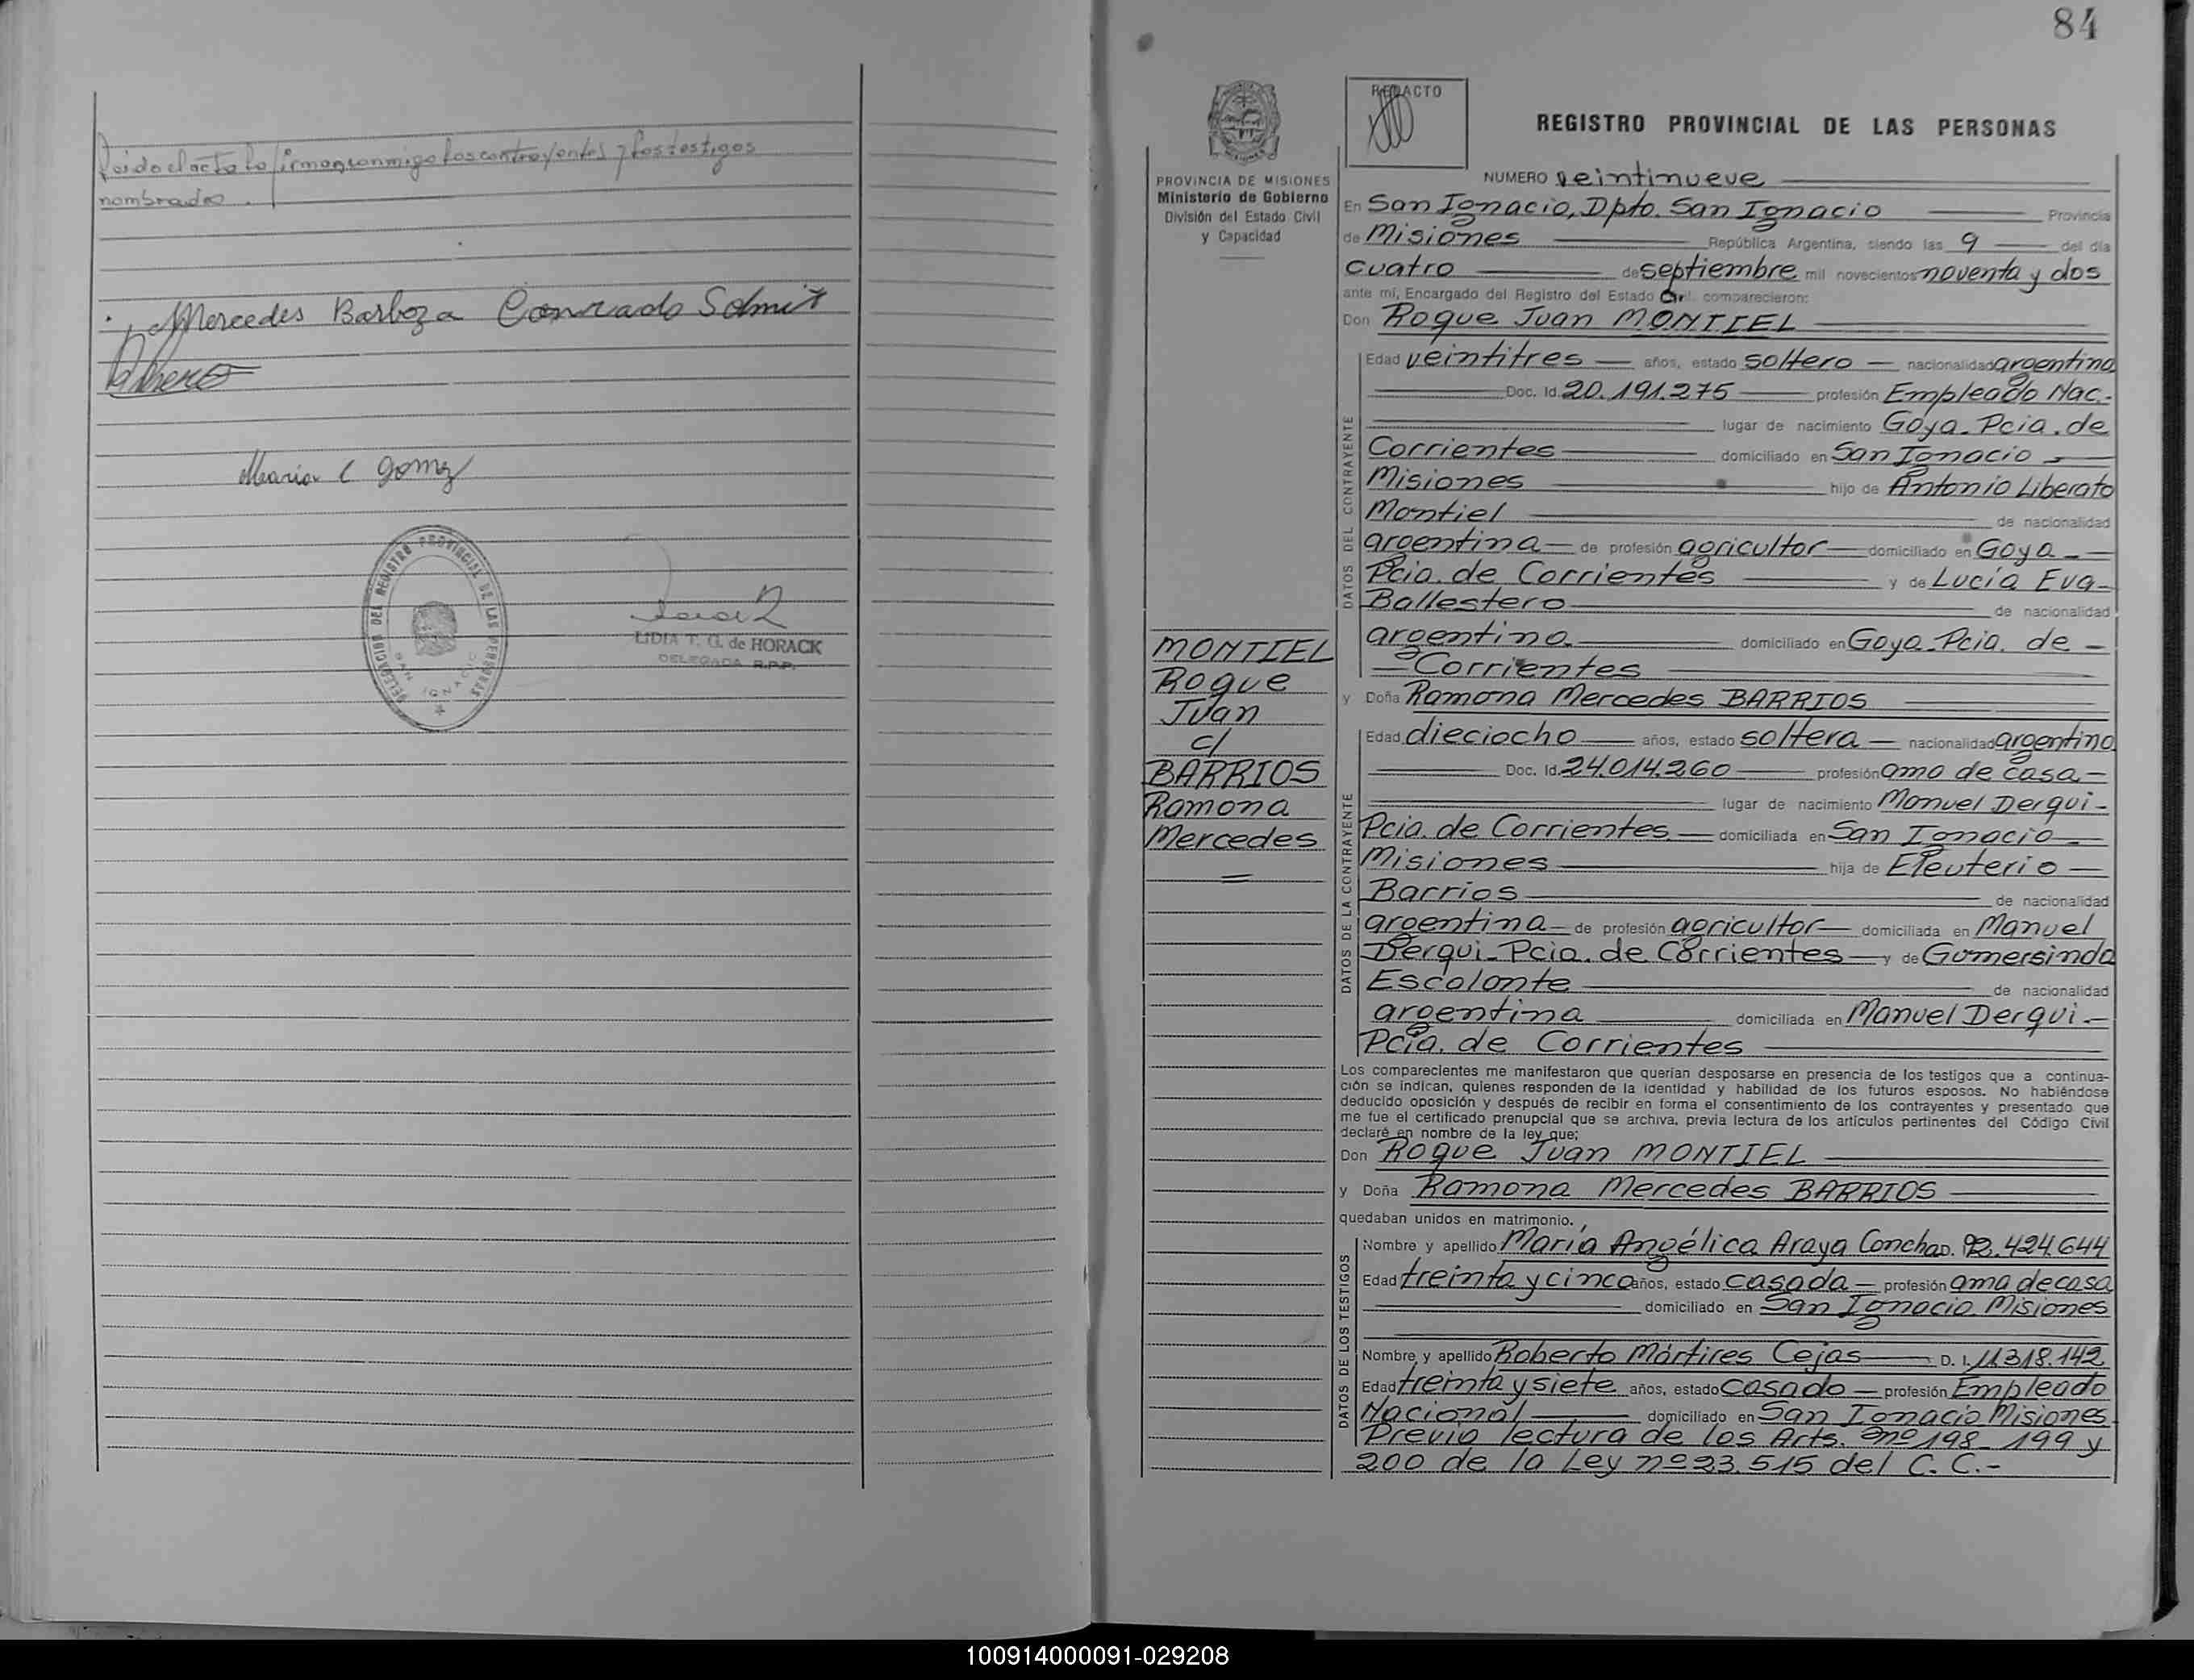 Leido el acta lo firman conmigo los contrayentes y los testigos
nombrados.
Mercedes Barboza Conrado Schmit
Maria C Gomez
DELEGACION DEL REGISTRO PROVINCIAL DE LAS PERSONAS
SAN IGNACIO
LIDIA T. G. de HORACK
DELEGADA R.P.P.
84
PROVINCIA DE MISIONES
Ministerio de Gobierno
División del Estado Civil
y Capacidad
MONTIEL
Roque
Juan
c/
BARRIOS
Ramona
Mercedes
REDACTO
REGISTRO PROVINCIAL DE LAS PERSONAS
NUMERO veintinueve
En San Ignacio, Dpto. San Ignacio Provincia
de Misiones República Argentina, siendo las 9 del día
cuatro de septiembre mil novecientos noventa y dos
ante mí, Encargado del Registro del Estado Civil comparecieron:
Don Roque Juan MONTIEL
DATOS DEL CONTRAYENTE
Edad veintitres años, estado soltero nacionalidad argentina
Doc. Id. 20.191.275 profesión Empleado Nac.
lugar de nacimiento Goya - Pcia. de
Corrientes domiciliado en San Ignacio
Misiones hijo de Antonio Liberato
Montiel de nacionalidad
argentina de profesión agricultor domiciliado en Goya
Pcia. de Corrientes y de Lucía Eva
Ballestero de nacionalidad
argentina domiciliado en Goya - Pcia. de
Corrientes
y Doña Ramona Mercedes BARRIOS
DATOS DE LA CONTRAYENTE
Edad dieciocho años, estado soltera nacionalidad argentina
Doc. Id. 24.014.260 profesión ama de casa
lugar de nacimiento Manuel Derqui
Pcia. de Corrientes domiciliada en San Ignacio
Misiones hija de Eleuterio
Barrios de nacionalidad
argentina de profesión agricultor domiciliada en Manuel
Derqui - Pcia. de Corrientes y de Gumersinda
Escalante de nacionalidad
argentina domiciliada en Manuel Derqui
Pcia. de Corrientes
Los comparecientes me manifestaron que querían desposarse en presencia de los testigos que a continua-
ción se indican, quienes responden de la identidad y habilidad de los futuros esposos. No habiéndose
deducido oposición y después de recibir en forma el consentimiento de los contrayentes y presentado que
me fue el certificado prenupcial que se archiva, previa lectura de los artículos pertinentes del Código Civil
declaré en nombre de la ley que;
Don Roque Juan MONTIEL
y Doña Ramona Mercedes BARRIOS
quedaban unidos en matrimonio.
DATOS DE LOS TESTIGOS
Nombre y apellido María Angélica Araya Concha D. 92.424.644
Edad treinta y cinco años, estado casada profesión ama de casa
domiciliado en San Ignacio Misiones
Nombre y apellido Roberto Mártires Cejas D. I. 11.318.142
Edad treinta y siete años, estado casado profesión Empleado
Nacional domiciliado en San Ignacio Misiones
Previa lectura de los Arts. nº 198 - 199 y
200 de la Ley nº 23.515 del C. C.-
100914000091-029208